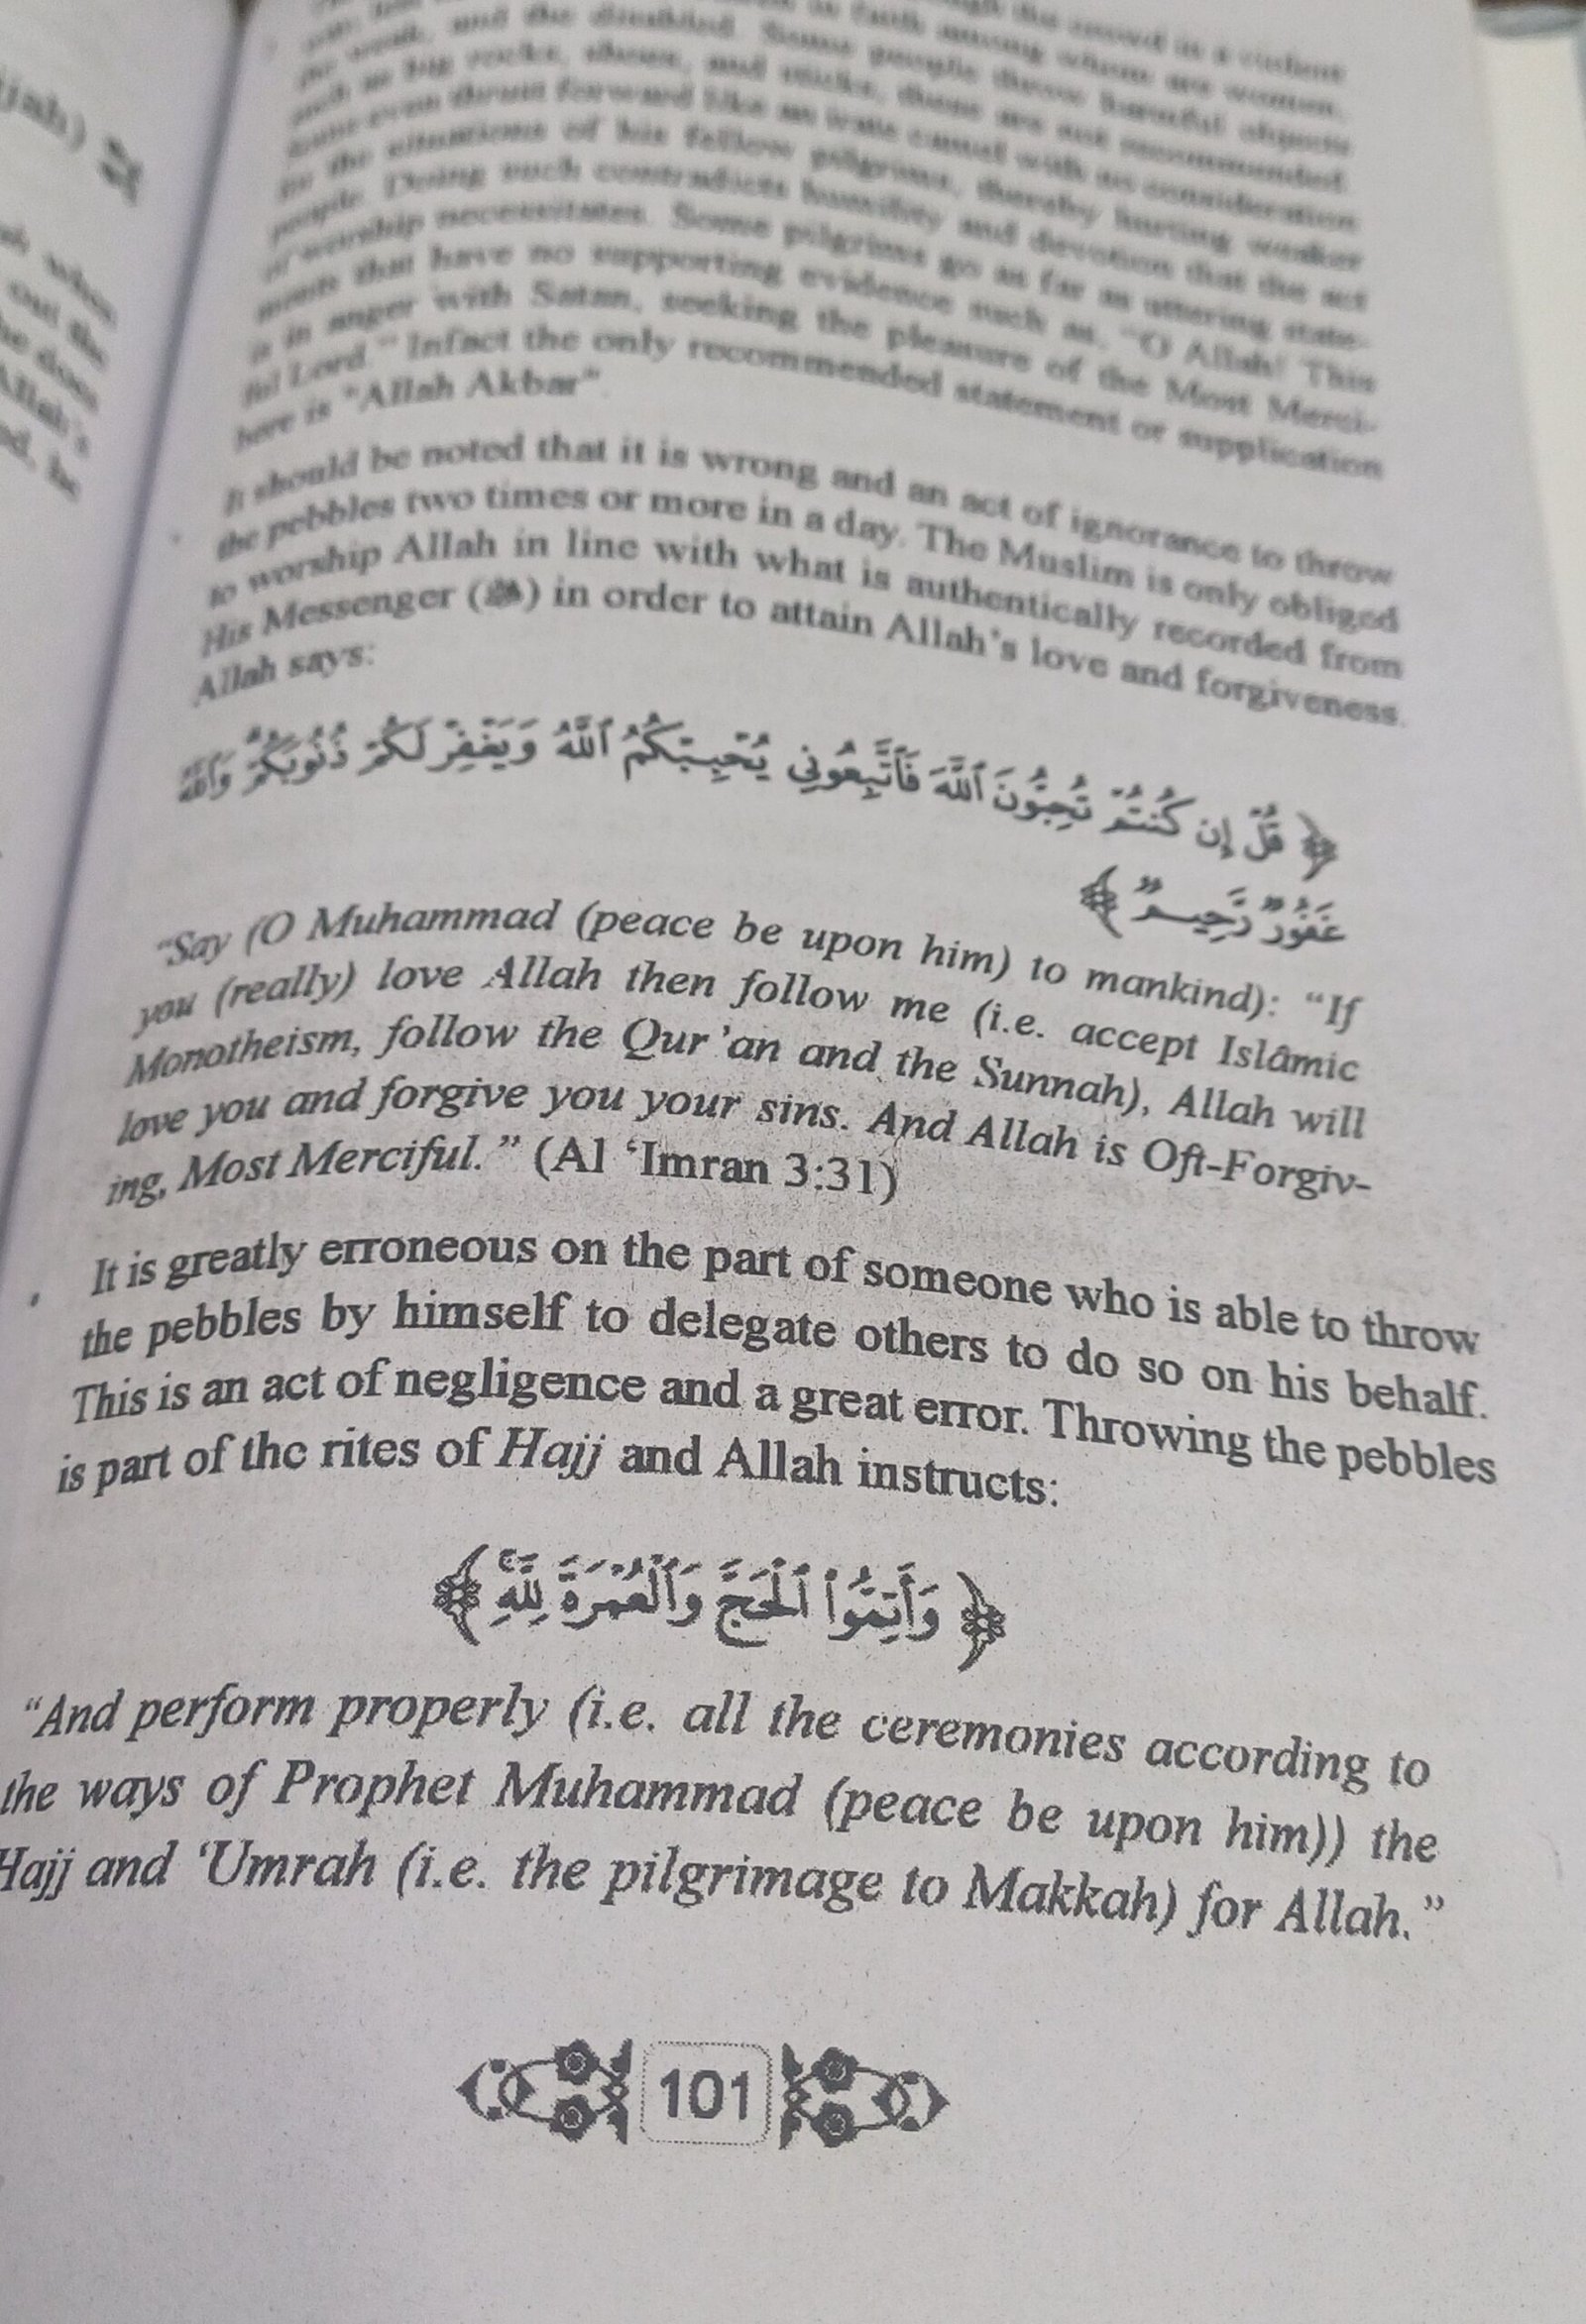 the weak, and the disabled. Some people throw harmful objects
such as big rocks, shoes, and sticks, these are not recommended.
some even thrust forward like an irate camel with no consideration
for the situations of his fellow pilgrims, thereby hurting weaker
people. Doing such contradicts humility and devotion that the act
of worship necessitates. Some pilgrims go as far as uttering state-
ments that have no supporting evidence such as, "O Allah! This
is in anger with Satan, seeking the pleasure of the Most Merci-
ful Lord." Infact the only recommended statement or supplication
here is "Allah Akbar".
It should be noted that it is wrong and an act of ignorance to throw
the pebbles two times or more in a day. The Muslim is only obliged
to worship Allah in line with what is authentically recorded from
His Messenger (ﷺ) in order to attain Allah's love and forgiveness.
Allah says:
﴿ قُلْ إِن كُنتُمْ تُحِبُّونَ ٱللَّهَ فَٱتَّبِعُونِي يُحْبِبْكُمُ ٱللَّهُ وَيَغْفِرْ لَكُمْ ذُنُوبَكُمْ ۗ وَٱللَّهُ
غَفُورٌ رَّحِيمٌ ﴾
"Say (O Muhammad (peace be upon him) to mankind): "If
you (really) love Allah then follow me (i.e. accept Islâmic
Monotheism, follow the Qur'an and the Sunnah), Allah will
love you and forgive you your sins. And Allah is Oft-Forgiv-
ing, Most Merciful." (Al 'Imran 3:31)
It is greatly erroneous on the part of someone who is able to throw
the pebbles by himself to delegate others to do so on his behalf.
This is an act of negligence and a great error. Throwing the pebbles
is part of the rites of Hajj and Allah instructs:
﴿ وَأَتِمُّوا۟ ٱلْحَجَّ وَٱلْعُمْرَةَ لِلَّهِ ۚ ﴾
"And perform properly (i.e. all the ceremonies according to
the ways of Prophet Muhammad (peace be upon him)) the
Hajj and 'Umrah (i.e. the pilgrimage to Makkah) for Allah."
101